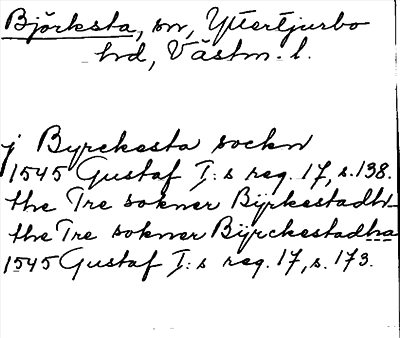 Björksta, sn, Yttertjurbo
hd, Västm. l.
j Byrckesta sockn
1545 Gustaf I:s reg. 17, s. 138.
the Tre sokner Bijrkestadh
the Tre sokner Bijrckestadhra
1545 Gustaf I:s reg. 17, s. 173.